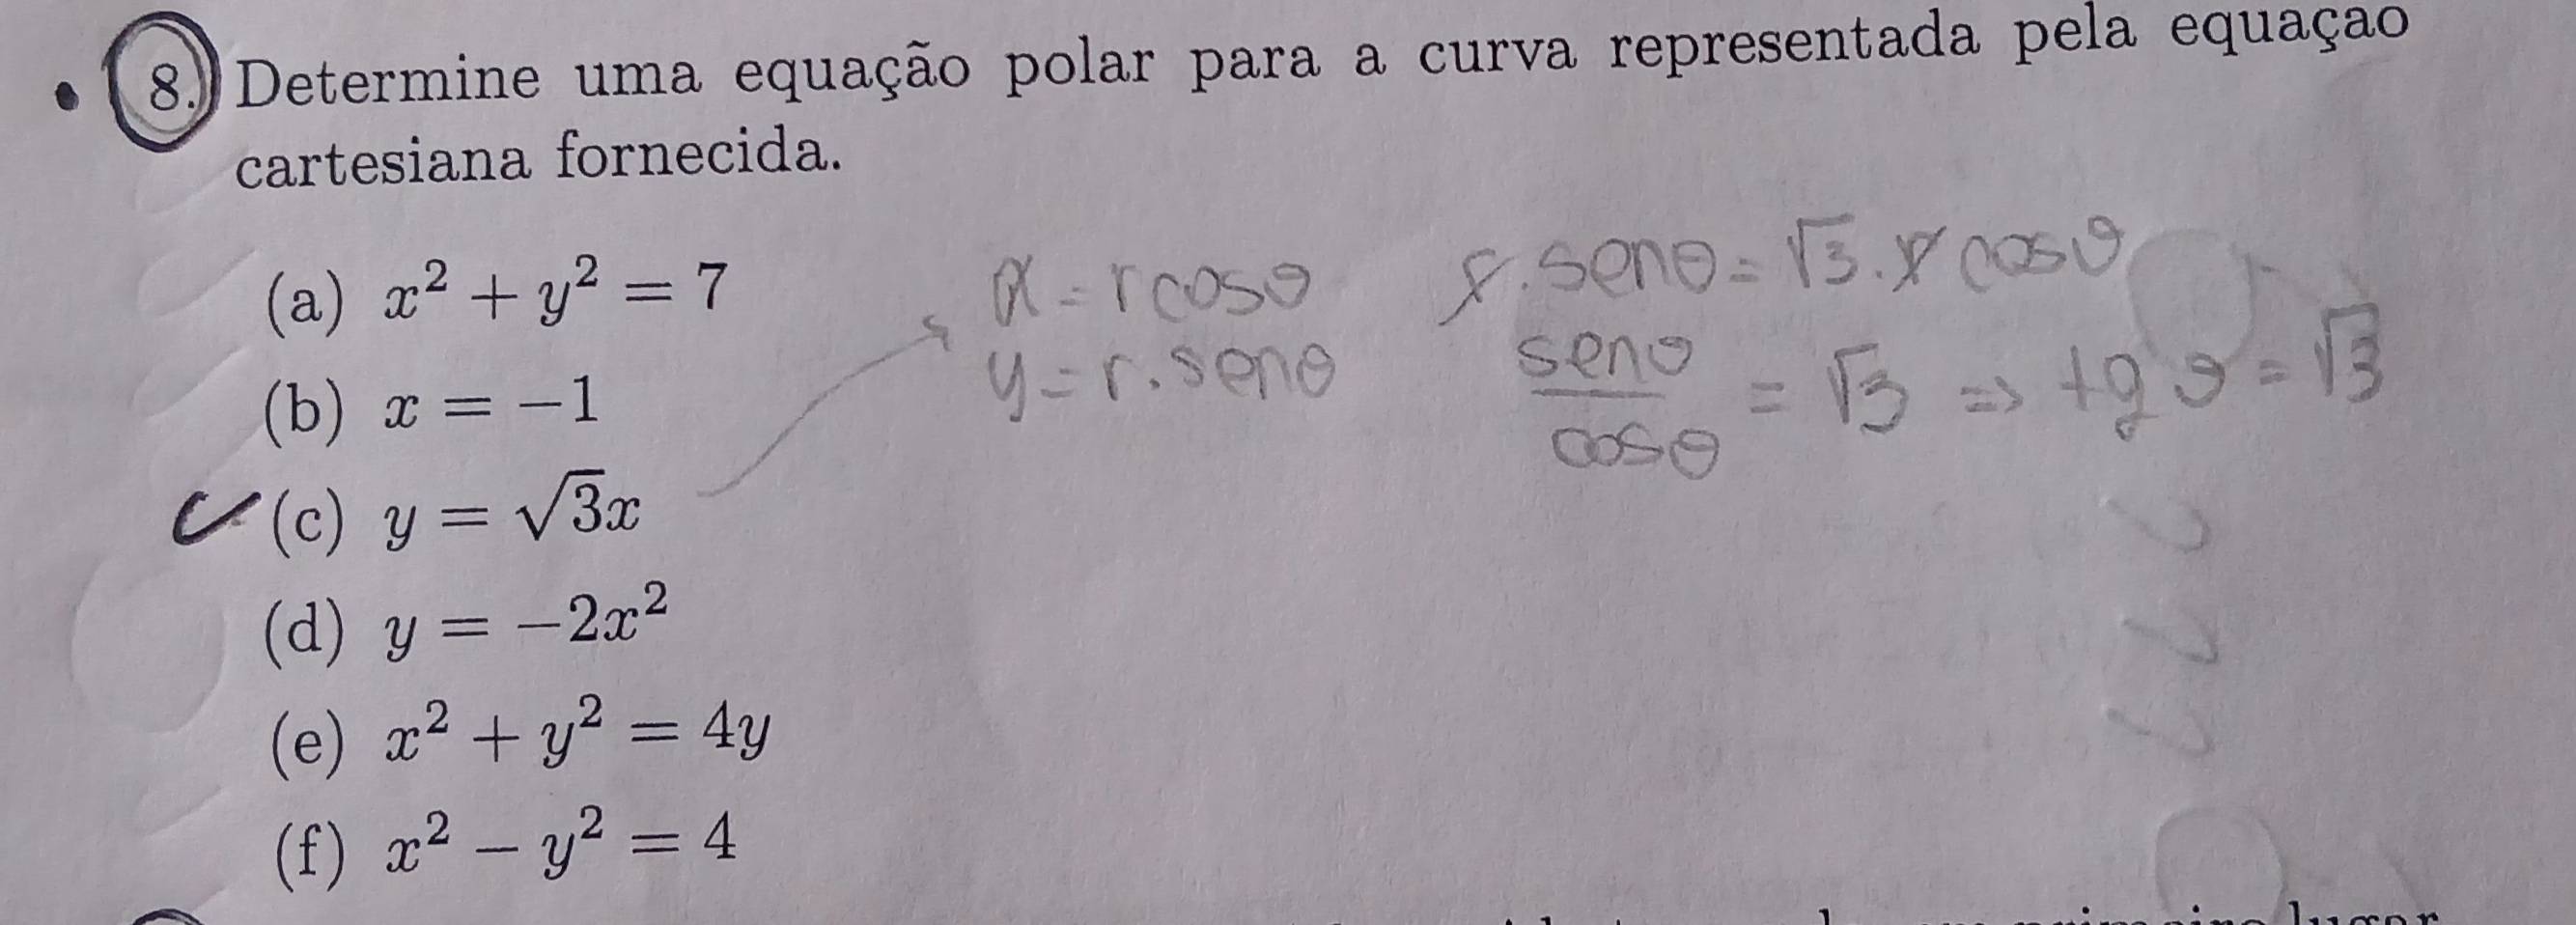 8. Determine uma equação polar para a curva representada pela equaçao
cartesiana fornecida.
(a) x² + y² = 7
(b) x = −1
(c) y = √3x
(d) y = −2x²
(e) x² + y² = 4y
(f) x² − y² = 4
x = r cosθ
y = r. senθ
r. senθ = √3. r cosθ
senθ/cosθ = √3 ⇒ tg θ = √3